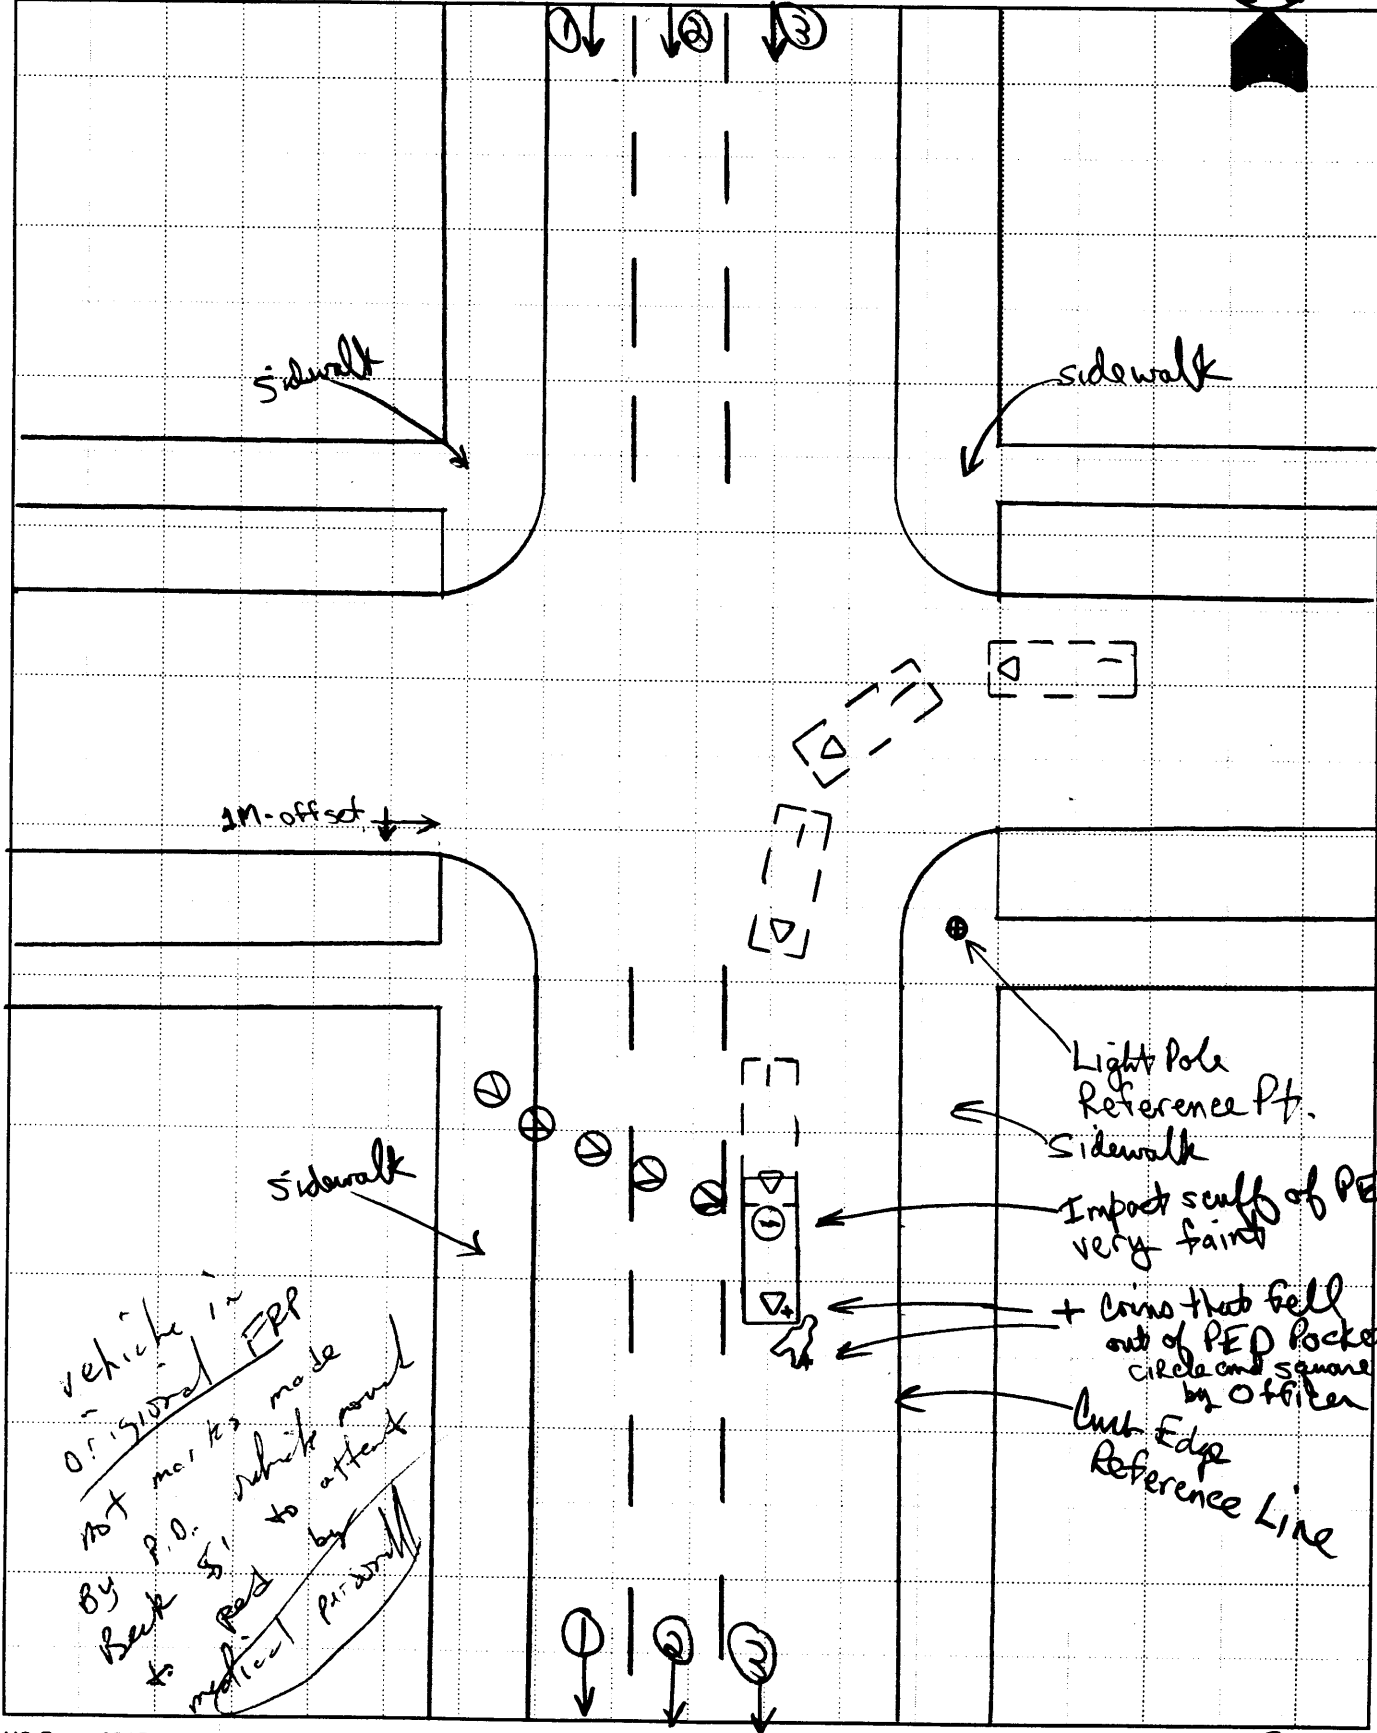 ① ② ③
sidewalk
sidewalk
1M-offset
Light Pole
Reference Pt.
Sidewalk
sidewalk
Impact scuff of PE
very faint
+ Coins that fell
out of PED Pocke
circle and square
by Officer
Curb Edge
Reference Line
vehicle in
original FRP
not marks made
By P.D. vehicle moved
Back 5' to attend
to ped by
medical personell
① ② ③